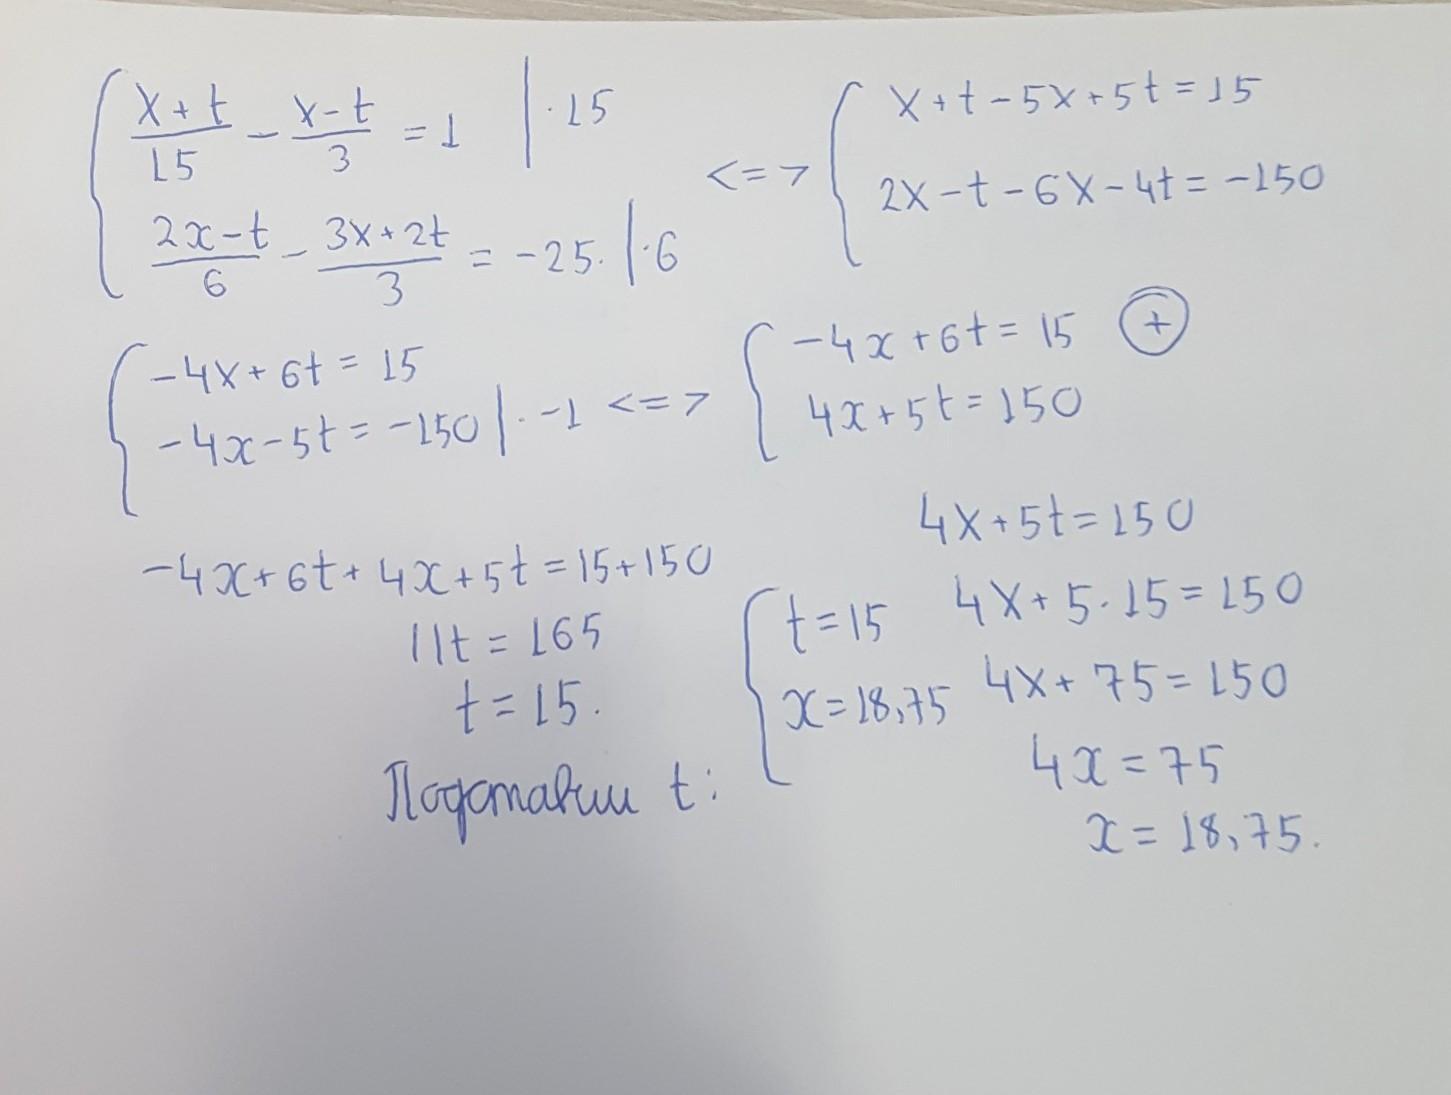 (x+t)/15 - (x-t)/3 = 1 | ·15
(2x-t)/6 - (3x+2t)/3 = -25. | ·6
<=>
x+t-5x+5t=15
2x-t-6x-4t=-150
-4x+6t=15
-4x-5t=-150 | · -1
<=>
-4x+6t=15 (+)
4x+5t=150
-4x+6t+4x+5t=15+150
11t=165
t=15.
Подставим t:
4x+5t=150
4x+5·15=150
4x+75=150
4x=75
x=18,75.
t=15
x=18,75